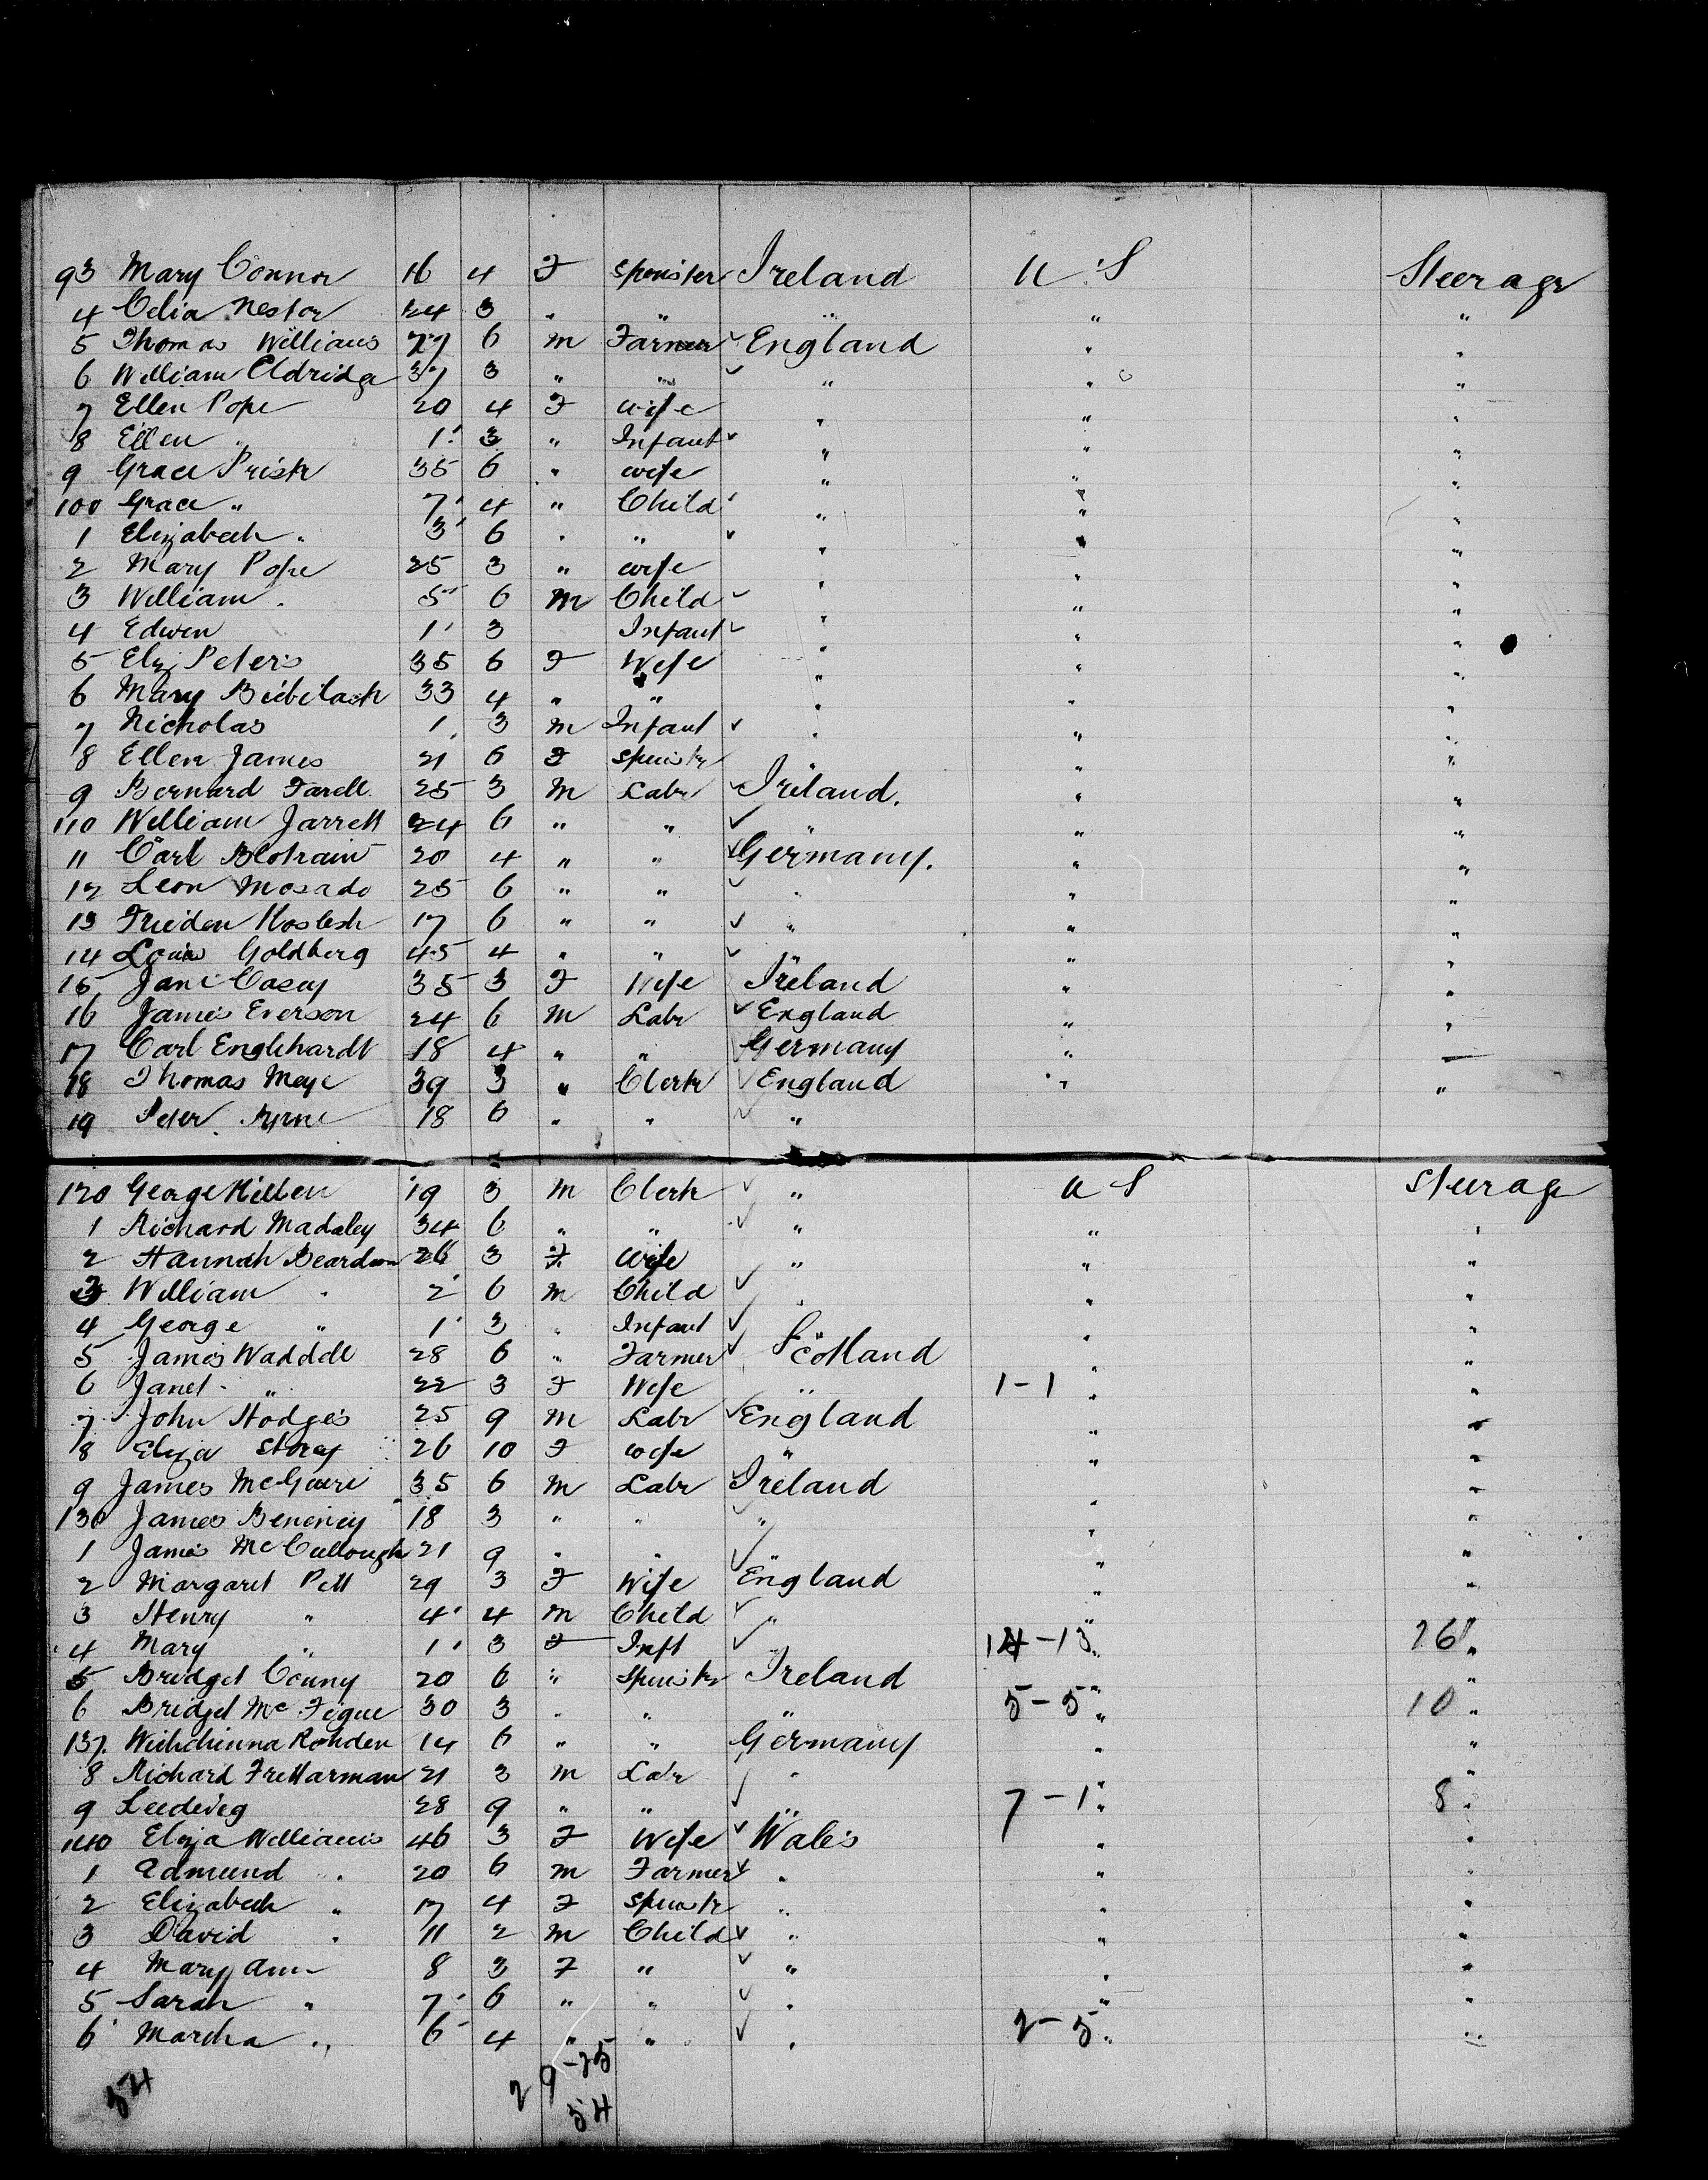 93 Mary Connor 16 4 F Spinster Ireland U S Steerage
4 Celia Nestor 24 3 " " " " "
5 Thomas Williams 29 6 m Farmer England " "
6 William Eldridge 37 3 " " " " "
7 Ellen Pope 20 4 F wife " " "
8 Ellen " 1 3 " Infant " " "
9 Grace Prisk 35 6 " wife " " "
100 Grace " 7 4 " Child " " "
1 Elizabeth " 3 6 " " " " "
2 Mary Pope 25 3 " wife " " "
3 William " 5 6 m Child " " "
4 Edwin 1 3 Infant " " "
5 Eliz Peters 35 6 F Wife " " "
6 Mary 33 4 " " " " "
7 Nicholas 1 3 m Infant " " "
8 Ellen James 21 6 F Spinstr " " "
9 Bernard Farell 25 3 m Labr Ireland. " "
110 William Jarrett 24 6 " " " " "
11 Carl 20 4 " " Germany. " "
12 Leon Mosado 25 6 " " " " "
13 17 6 " " " " "
14 Louis Goldberg 45 4 " " " " "
15 Jane Casey 35 3 F Wife Ireland " "
16 James Everson 24 6 m Labr England " "
17 Carl Englehardt 18 4 " " Germany " "
18 Thomas Meye 39 3 " Clerk England " "
19 Peter 18 6 " " "
120 George Killen 19 3 m Clerk " U S Steerage
1 Richard Madaley 34 6 " " " " "
2 Hannah Beardon 26 3 F. Wife " " "
3 William " 2 6 m Child " " "
4 George " 1 3 " Infant " " "
5 James Waddell 28 6 " Farmer Scotland " "
6 Janet " 22 3 F Wife " 1-1 " "
7 John Hodges 25 9 m Labr England " "
8 Eliza Storey 26 10 F wife " " "
9 James McGuire 35 6 m Labr Ireland " "
130 James Beneney 18 3 " " " " "
1 James McCullough 21 9 " " " "
2 Margaret Pell 29 3 F Wife England " "
3 Henry " 4 4 m Child " " "
4 Mary " 1 3 F Inft 14-13 " 26 "
5 Bridget Conny 20 6 " Spinstr Ireland " "
6 Bridget McFigue 30 3 " " " 5-5 " 10 "
137. Wilhelmina Rohden 14 6 " " Germany " "
8 Richard 21 3 m Labr " " "
9 Ludwig 28 9 " " " 7-1 " 8 "
140 Eliza Williams 46 3 F Wife Wales " "
1 Edmund " 20 6 m Farmer " " "
2 Elizabeth " 17 4 F Spinstr " " "
3 David " 11 2 m Child " " "
4 Mary Ann 8 3 F " " " "
5 Sarah " 7 6 " " " " "
6 Martha " 6 4 " " " 2-5 " "
54 29-25
54